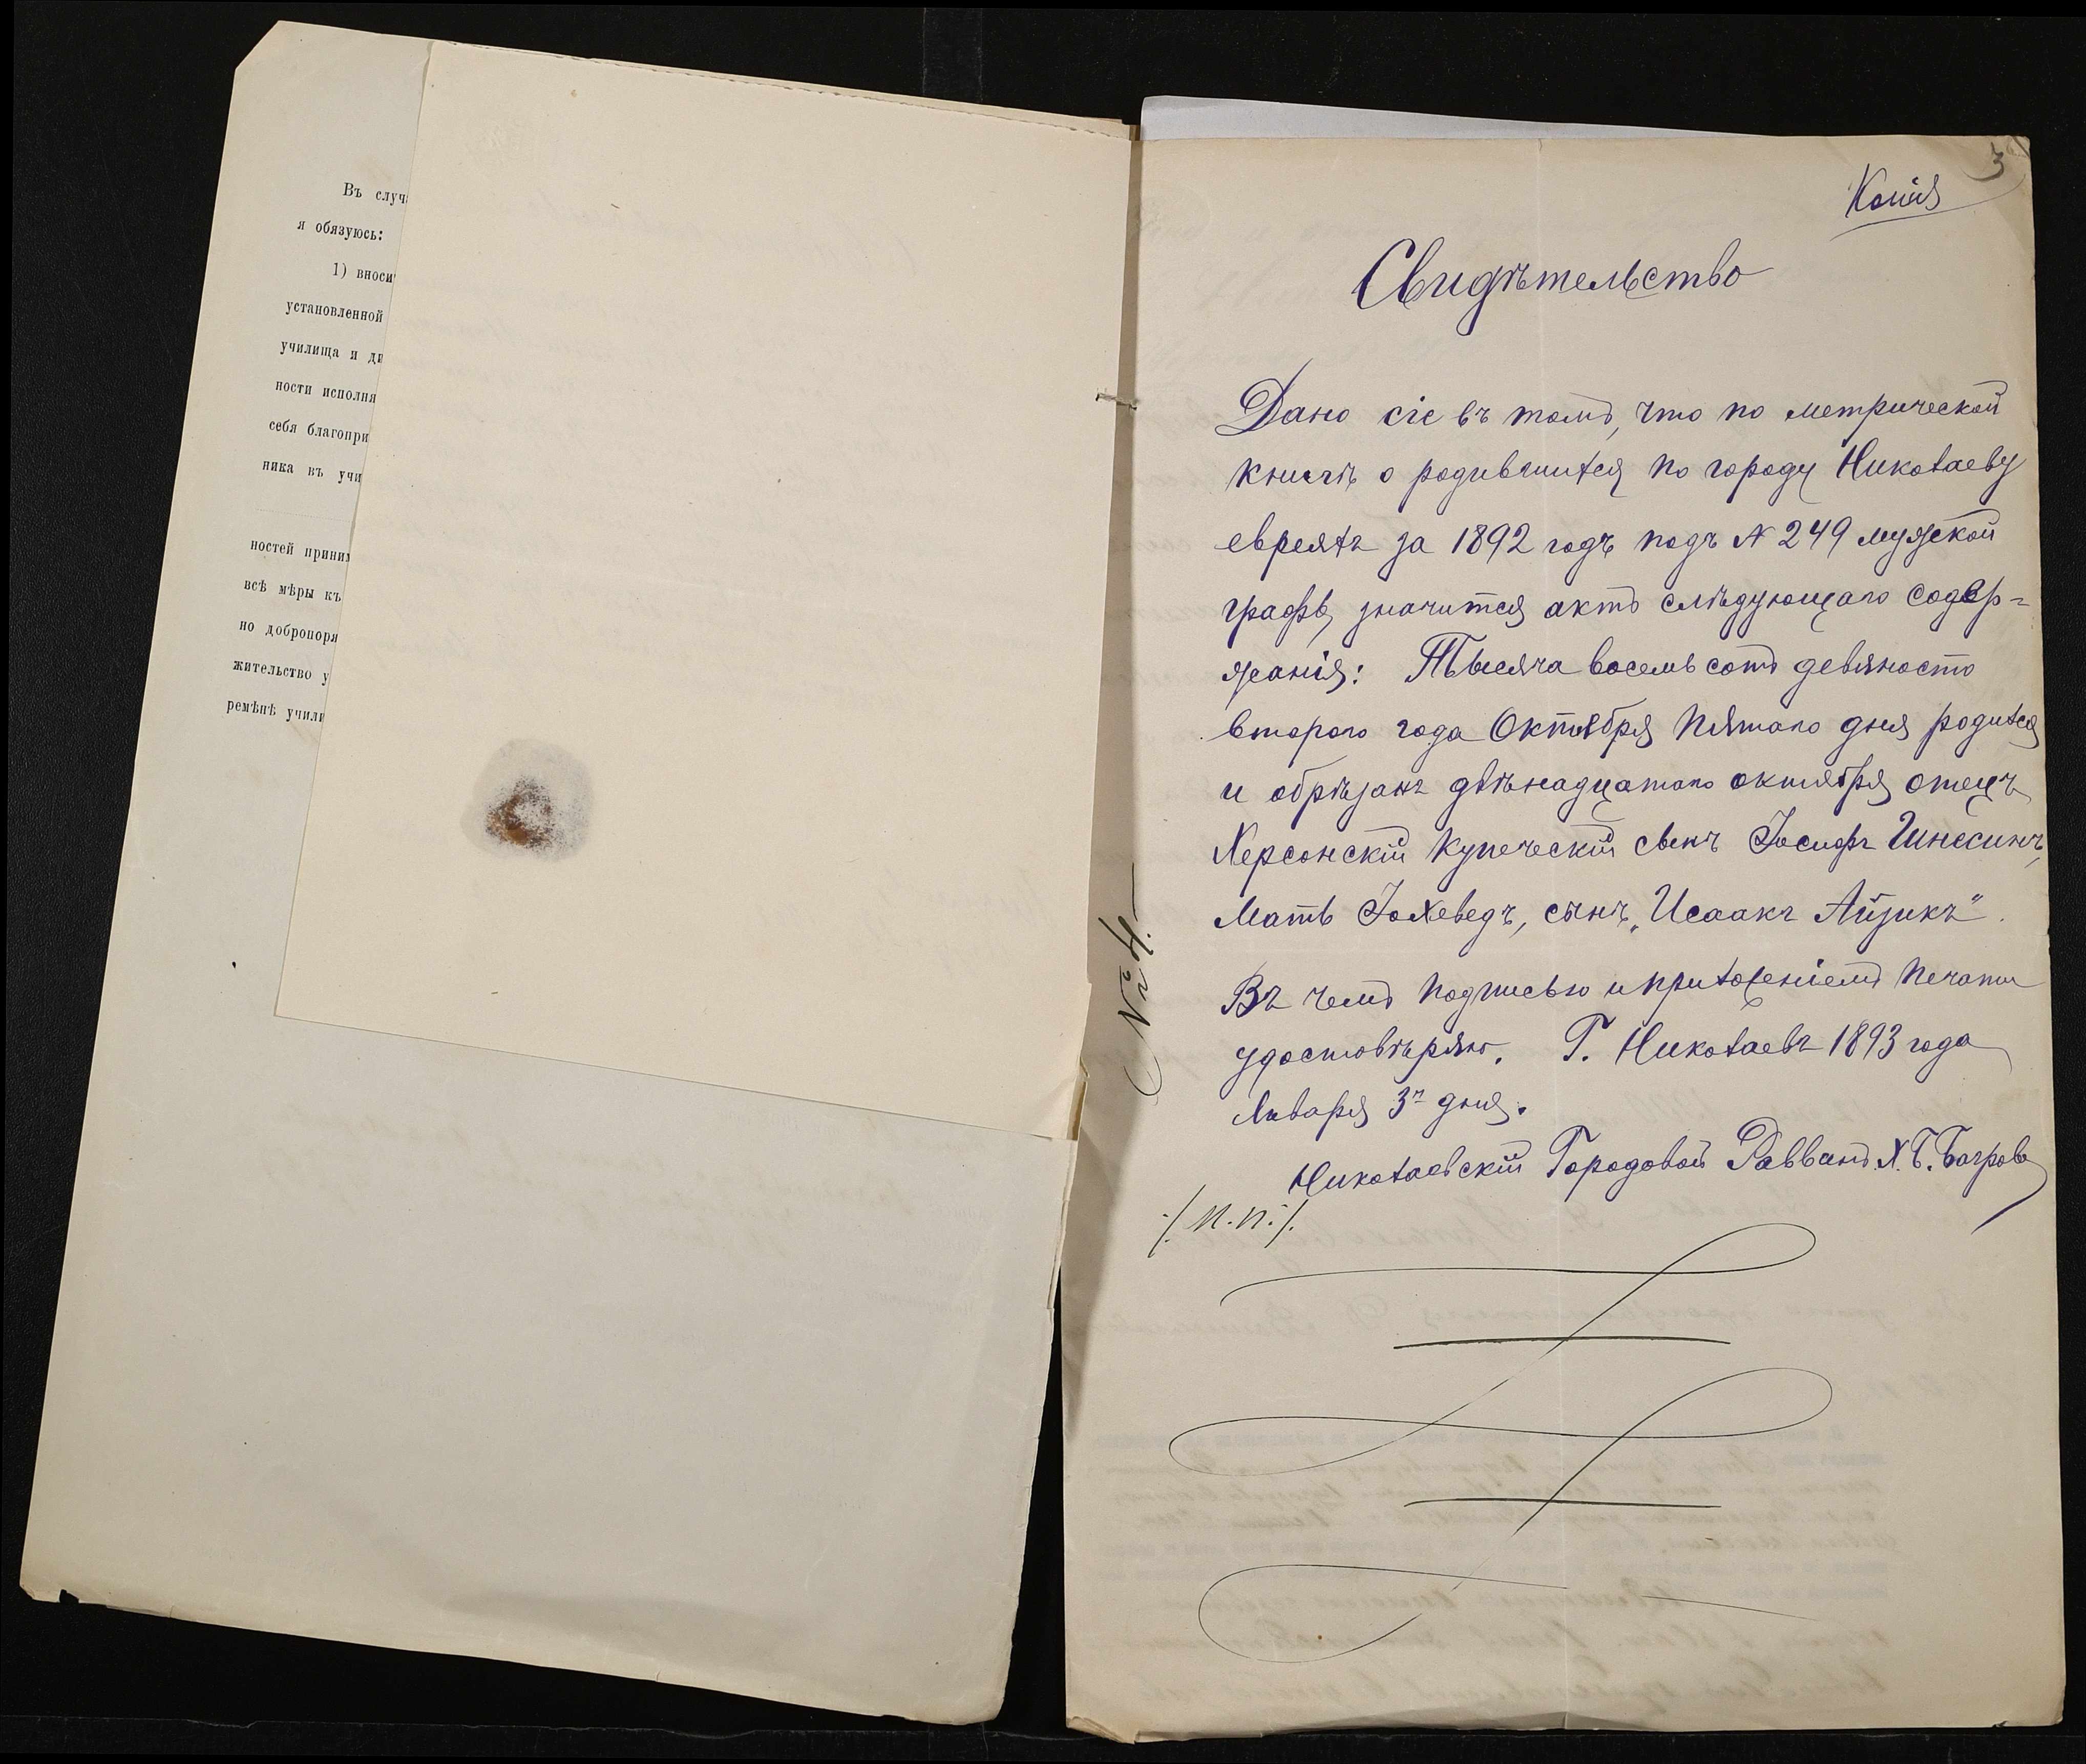 Въ случ
я обязуюсь:
1) вноси
установленной
училища и
ности исполня
себя благопри
ника въ учи
ностей приним
всѣ мѣры къ
но добропоря
жительство у
ремѣнѣ учили
№ 4.
3
Копія
Свидѣтельство
Дано сіе въ томъ, что по метрической
книгѣ о родившихся по городу Николаеву
евреяхъ за 1892 годъ подъ № 249 мужской
графы, значится актъ слѣдующаго содер=
жанія: Тысяча восемьсотъ девяносто
второго года Октября пятаго дня родился
и обрѣзанъ двѣнадцатаго октября, отецъ
Херсонскій купеческій сынъ Іосифъ Гинесинъ,
мать Іохеведъ, сынъ „Исаакъ Айзикъ".
Въ чемъ подписью и приложеніемъ печати
удостовѣряю. Г. Николаевъ 1893 года
Января 3го дня.
Николаевскій Городовой Раввинъ Х. Б. Багровъ
/М.П./.